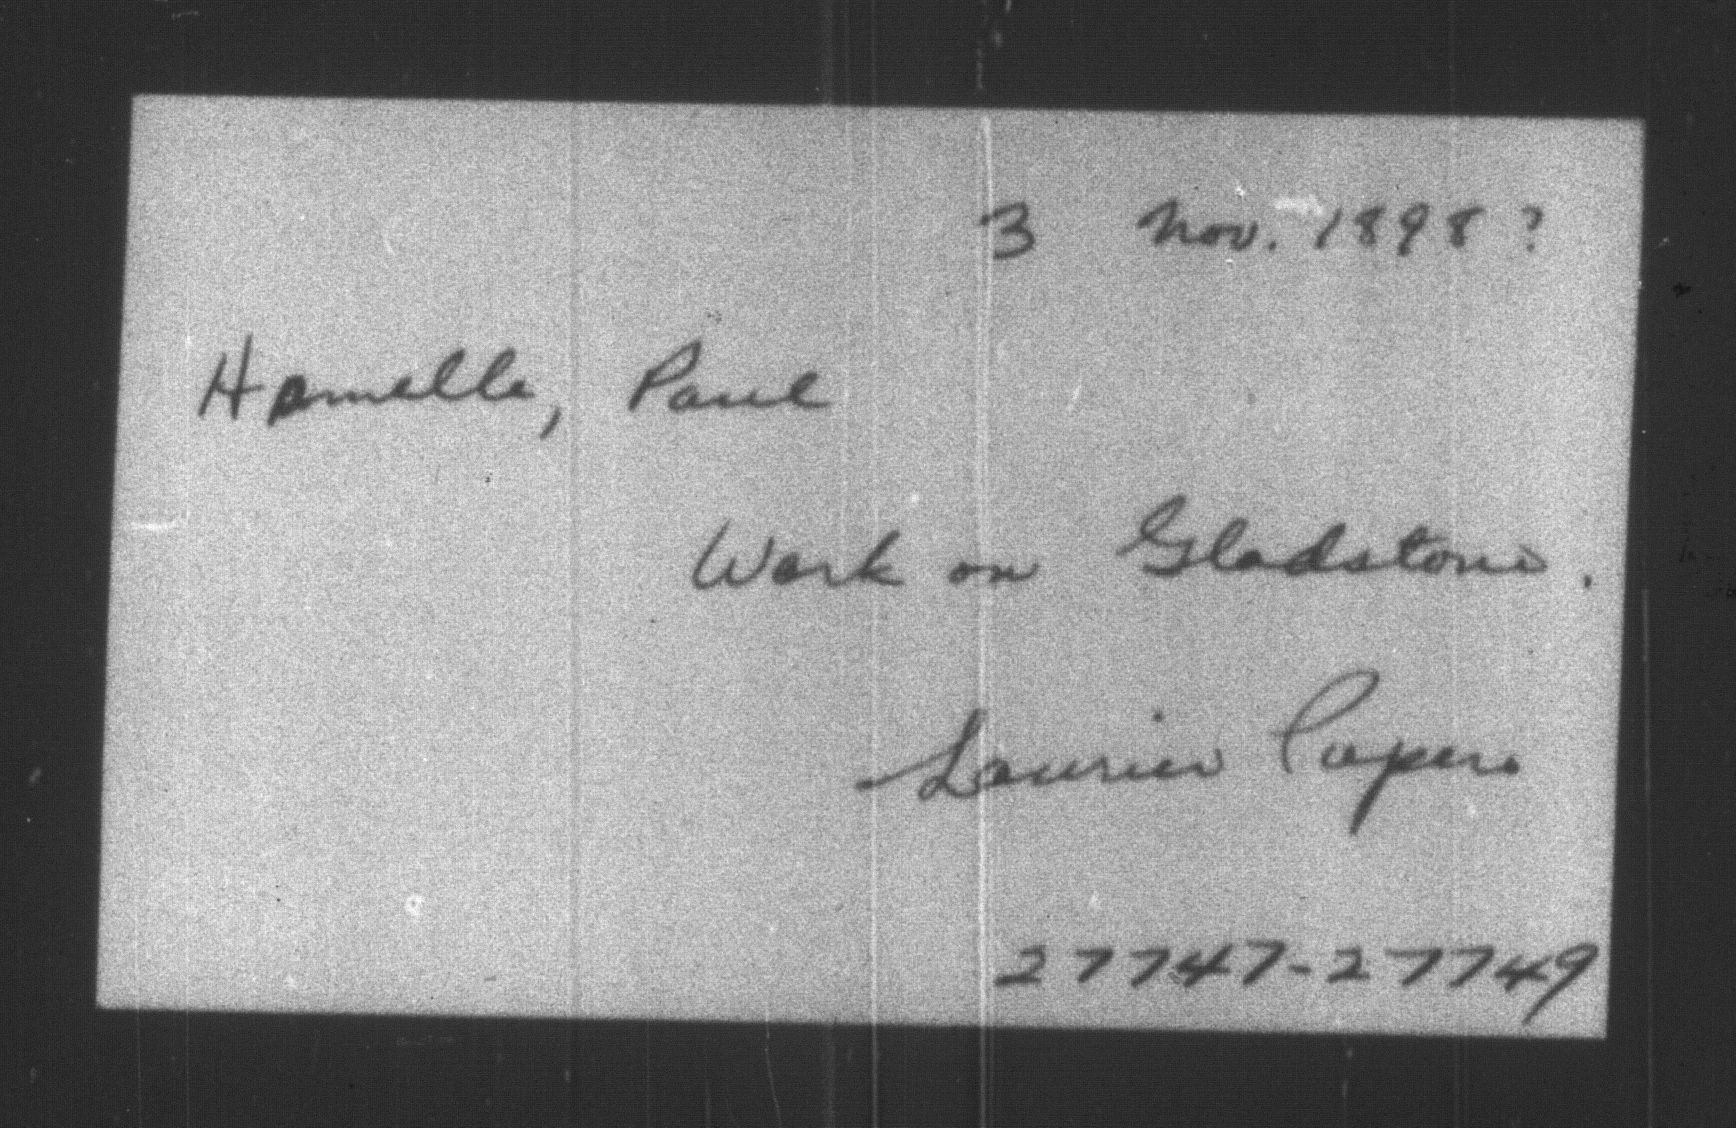 3 Nov. 1898?
Hamelle, Paul
Work on Gladstone.
Laurier Papers
27747-27749